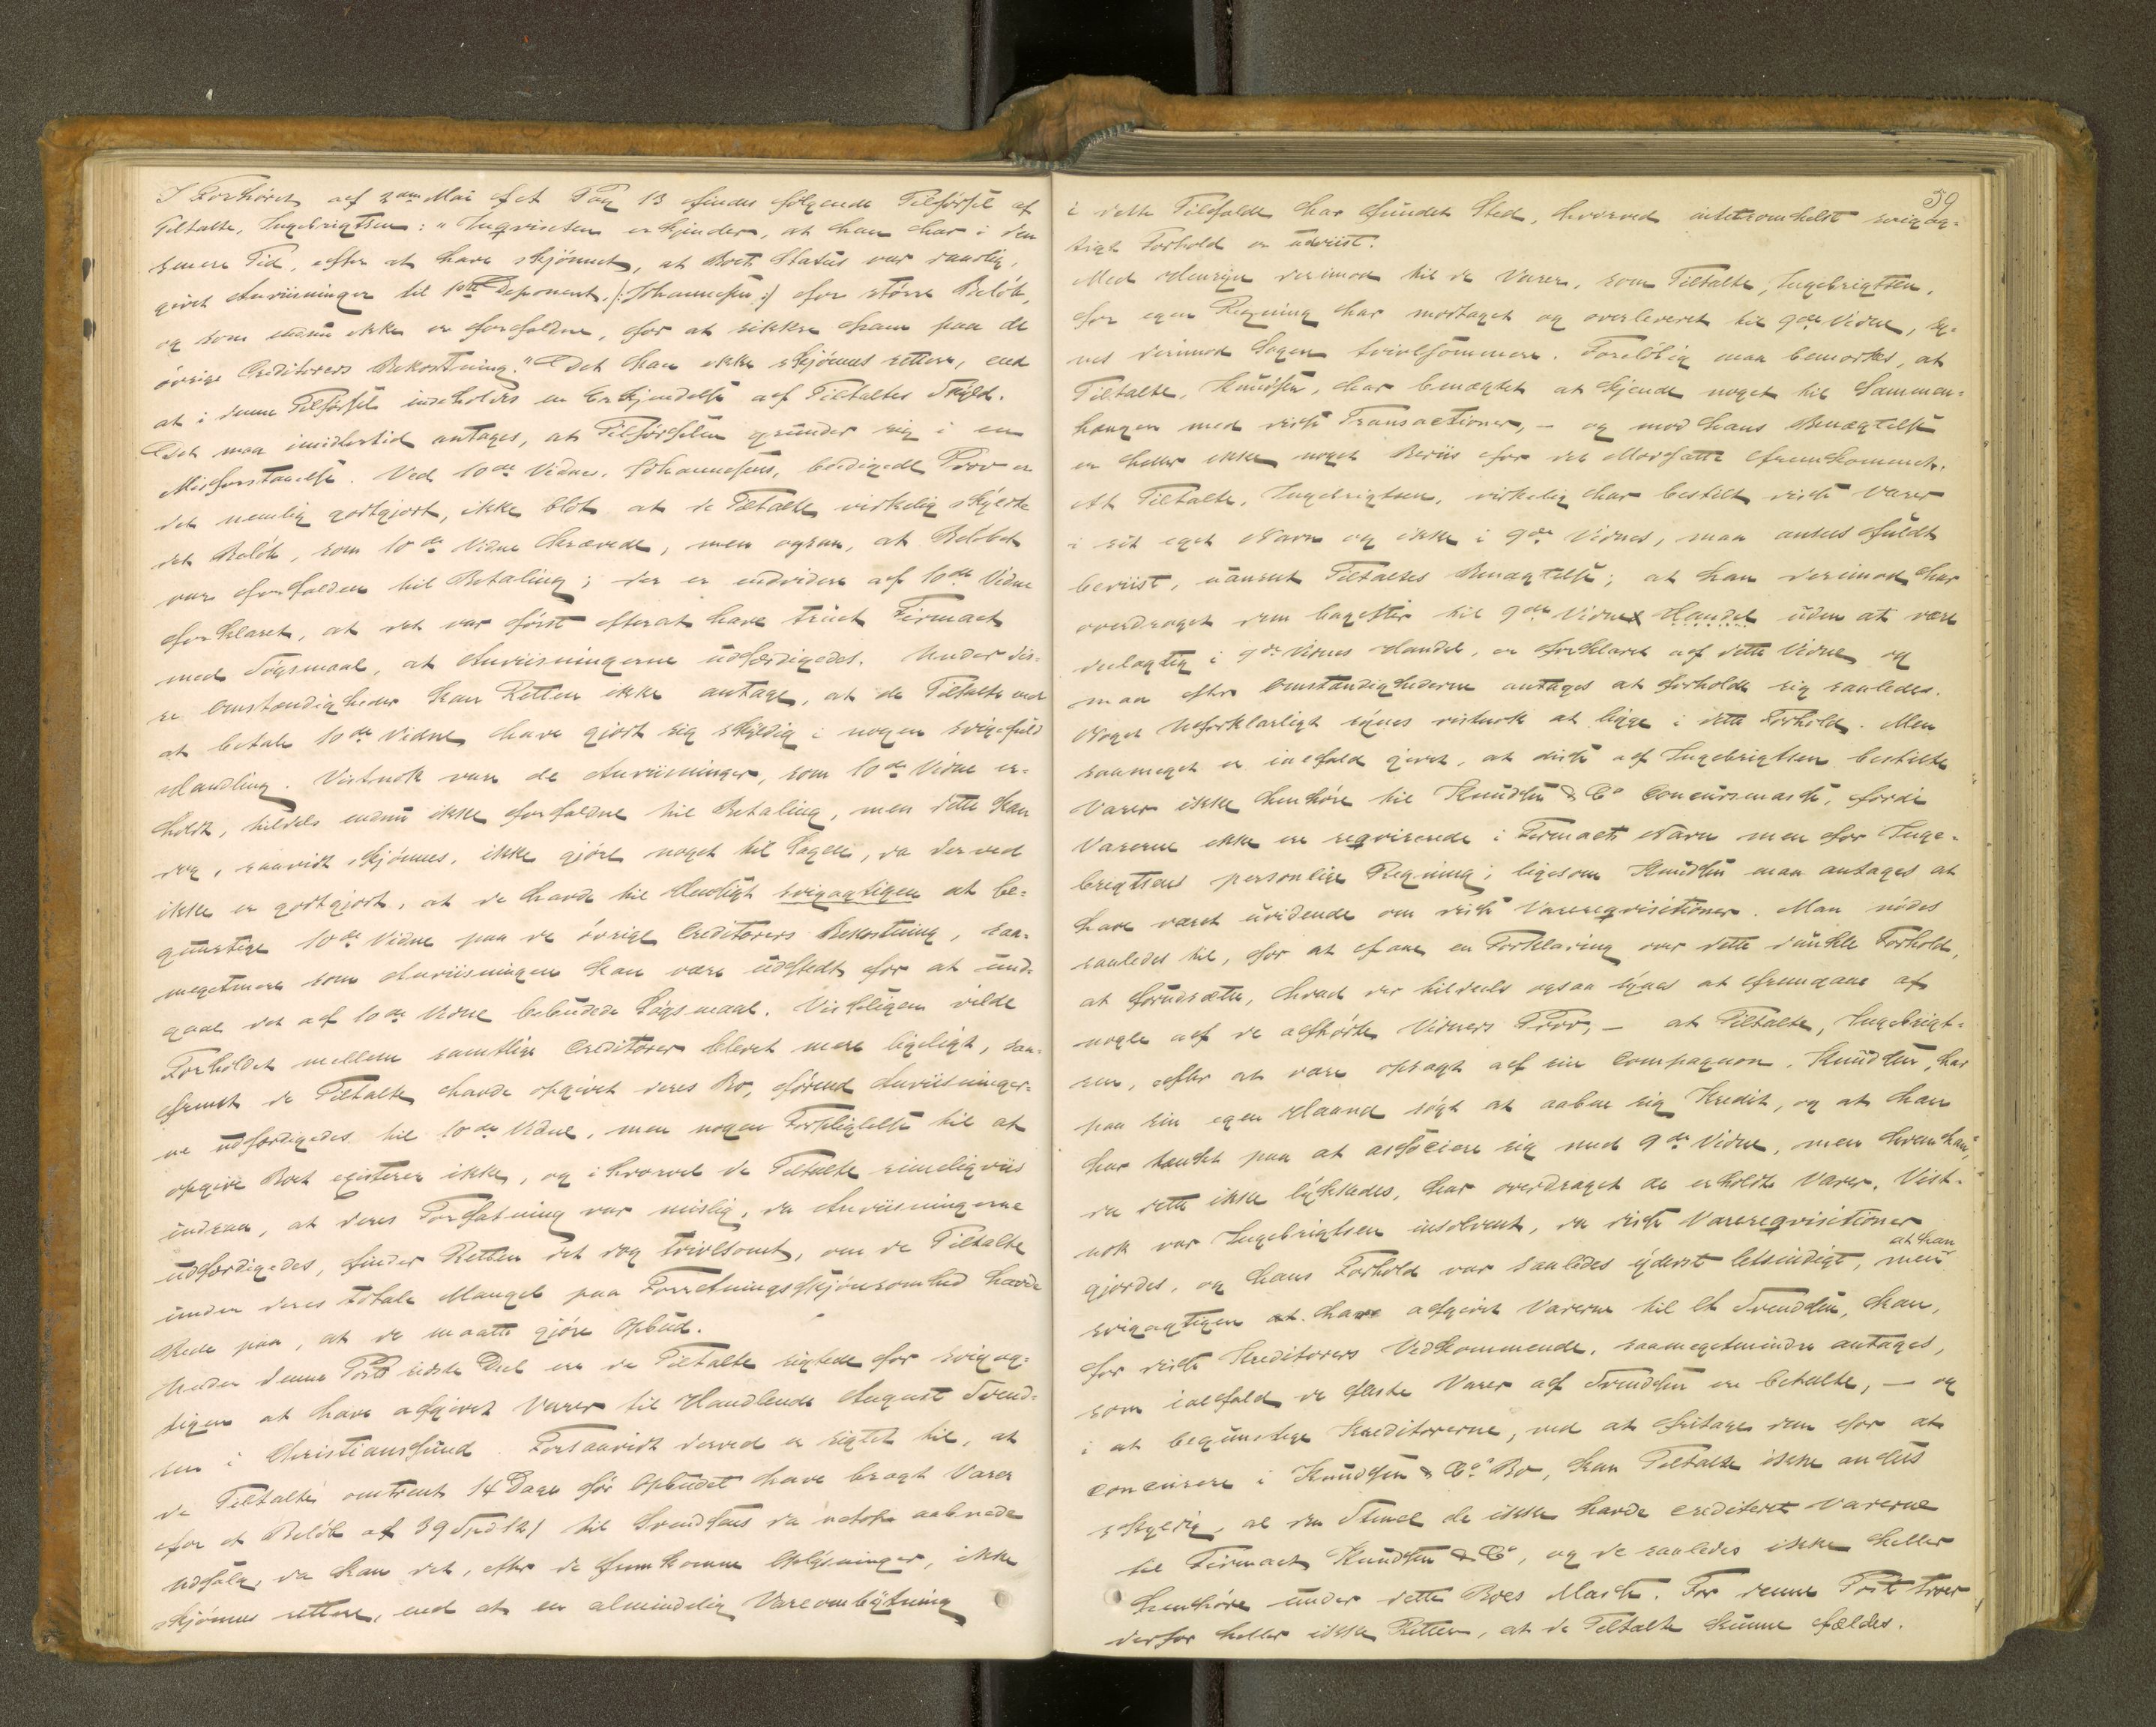 I Forhøret af 2den Mai sft Pag 13 findes følgende Tilførsel af
Tiltalte, Ingebrigtsen: "Inqvisiten erkjender, at han har i den
senere Tid, efter at have skjønnet, at Boets Status var daarlig,
givet Anviisninger til 1ste Deponent /:Johannesen:/ for større Beløb,
og som endnu ikke er forfaldne, for at sikkre ham paa de
øvrige Creditorers Bekostning." Det kan ikke skjønnes rettere, end
at i denne Tilførsel indeholdes en Erkjendelse af Tiltaltes Skyld.
Det maa imidlertid antages, at Tilførselen grunder sig i en
Misforstaaelse. Ved 10de Vidnes, Johannesens, beedigede Prov er
det nemlig godtgjort, ikke blot at de Tiltalte virkelig skyldte
det Beløb, som 10de Vidne krævede, men ogsaa, at Beløbet
var forfalden til Betaling; der er endvidere af 10de Vidne
forklaret, at det var først efterat have truet Firmaet
med Søgsmaal, at Anviisningerne udfærdigedes. Under dis-
se Omstændigheder kan Retten ikke antage, at de Tiltalte ved
at betale 10de Vidne have gjort sig skyldig i nogen svigefuld
Handling. Vistnok vare de Anviisninger, som 10de Vidne er-
holdt, tildels endnu ikke forfaldne til Betaling, men dette kan
dog, saavidt skjønnes, ikke gjøre noget til Sagen, da derved
ikke er godtgjort, at de havde til Hensigt svigagtigen at be-
gunstige 10de Vidne paa de øvrige Creditorers Bekostning, saa-
megetmere som Anviisningen kan være udstedt for at und-
gaae det af 10de Vidne bebudede Søgsmaal. Visseligen vilde
Forholdet mellem samtlige Creditorer blevet mere ligeligt, saa-
fremt de Tiltalte havde opgivet deres Bo, førend Anviisninger-
ne udfærdigedes til 10de Vidne, men nogen Forpligtelse til at
opgive Boet existerer ikke, og ihvorvel de Tiltalte rimeligviis
indsaae, at deres Forfatning var mislig, da Anviisningerne
udfærdigedes, finder Retten det dog tvivlsomt, om de Tiltalte
under deres totale Mangel paa Forretningsskjønsomhed havde
Rede paa, at de maatte gjøre Opbud.
Under denne Posts sidste Deel ere de Tiltalte sigtede for svigag-
tigen at have afgivet Varer til Handlende August Svend-
sen i Christiansund. Forsaavidt derved er sigtet til, at
de Tiltalte omtrent 14 Dage før Opbudet have bragt Varer
for et Beløb af 39 Spd 12 s til Svendsens da netop aabnede
Udsalg, da kan det, efter de fremkomne Oplysninger, ikke
skjønnes rettere, end at en almindelig Vareombytning
59
i dette Tilfælde har fundet Sted, hvorved intetsomhelst svigag-
tigt Forhold er udviist.
Med Hensyn derimod til de Varer, som Tiltalte, Ingebrigtsen,
for egen Regning har modtaget og overleveret til 9de Vidne, sy-
nes derimod Sagen tvivlsommere. Foreløbig maa bemærkes, at
Tiltalte, Knudsen, har benægtet at kjende noget til Sammen-
hængen med disse Transactioner, – og mod hans Benægtelse
er heller ikke noget Beviis for det Modsatte fremkommet.
At Tiltalte, Ingebrigtsen, virkelig har bestilt disse Varer
i sit eget Navn og ikke i 9de Vidnes, maa ansees fuldt
beviist, uanseet Tiltaltes Benægtelse; at han derimod har
overdraget dem bagefter til 9de Vidne Handel uden at være
deelagtig i 9de Vidnes Handel, er forklaret af dette Vidne og
maa efter Omstændighederne antages at forholde sig saaledes.
Noget Uforklarligt synes vistnok at ligge i dette Forhold. Men
saameget er ialfald givet, at disse af Ingebrigtsen bestilte
Varer ikke henhøre til Knudsen & Co Concursmasse, fordi
Varerne ikke ere reqvirerede i Firmaets Navn men for Inge-
brigtsens personlige Regning; ligesom Knudsen maa antages at
have været uvidende om disse Varereqvisitioner. Man nødes
saaledes til, for at faae en Forklaring over dette dunkle Forhold,
at forudsætte, hvad der tildeels ogsaa synes at fremgaae af
nogle af de afhørte Vidners Prov, – at Tiltalte, Ingebrigt-
sen, efter at være opsagt af sin Compagnon, Knudsen, har
paa sin egen Haand søgt at aabne sig Kredit, og at han
har tænkt paa at associere sig med 9de Vidne, men hvem han,
da dette ikke lykkedes, har overdraget de erholdte Varer. Vist-
nok var Ingebrigtsen insolvent, da disse Varereqvisitioner
gjordes, og hans Forhold var saaledes yderst letsindigt, men at han
svigagtigen har afgivet Varerne til A Svendsen, kan,
for disse Kreditorers Vedkommende, saamegetmindre antages,
som ialfald de fleste Varer af Svendsen ere betalte, – og
i at begunstige Kreditorerne, ved at fritage dem for at
concurrere i Knudsen & Co's Bo, kan Tiltalte ikke ansees
skyldig, al den Stund de ikke havde crediteret Varerne
til Firmaet Knudsen & Co, og de saaledes ikke heller
henhøre under dette Boes Masse. For denne Post troer
derfor heller ikke Retten, at de Tiltalte kunne fældes.